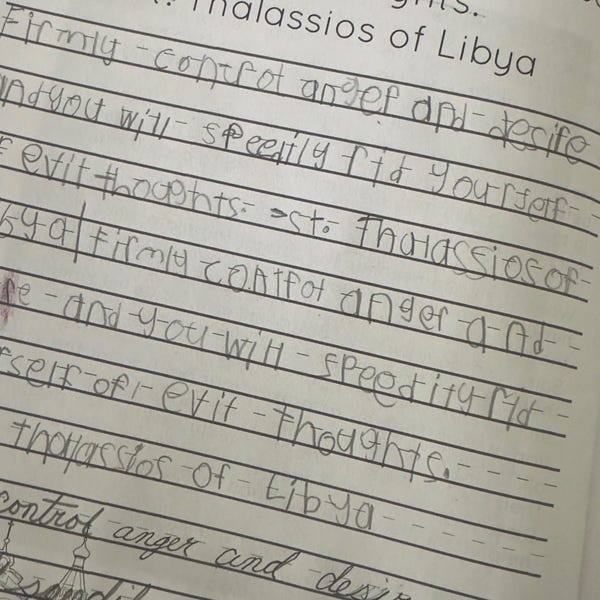 Thalassios of Libya
Firmly control anger and desire
and you will speedily rid yourself
evil thoughts. St. Thalassios of
bya firmly control anger and
re and you will speedily rid
rself of evil thoughts.
thalassios of Libya
control anger and desir